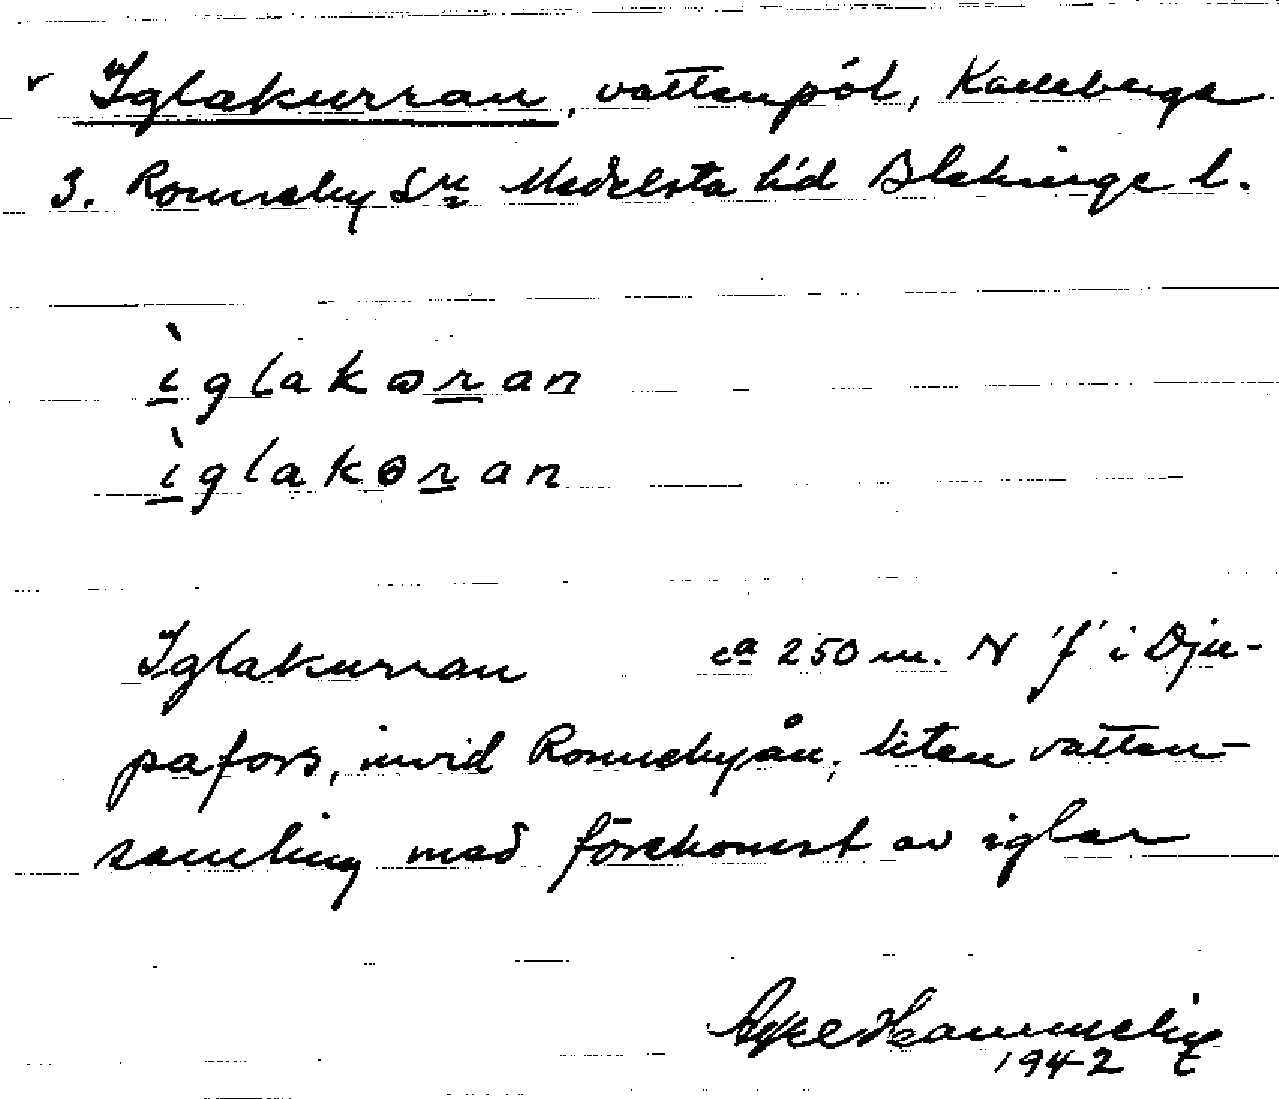 Iglakurran, vattenpöl, Karleberga
3. Ronneby Sn Medelsta hd Blekinge l.
ìglakɷran
ìglakɵran
Iglakurran ca 250 m. N 'f' i Dju-
pafors, invid Ronnebyån, liten vatten-
samling med förekomst av iglar
1942